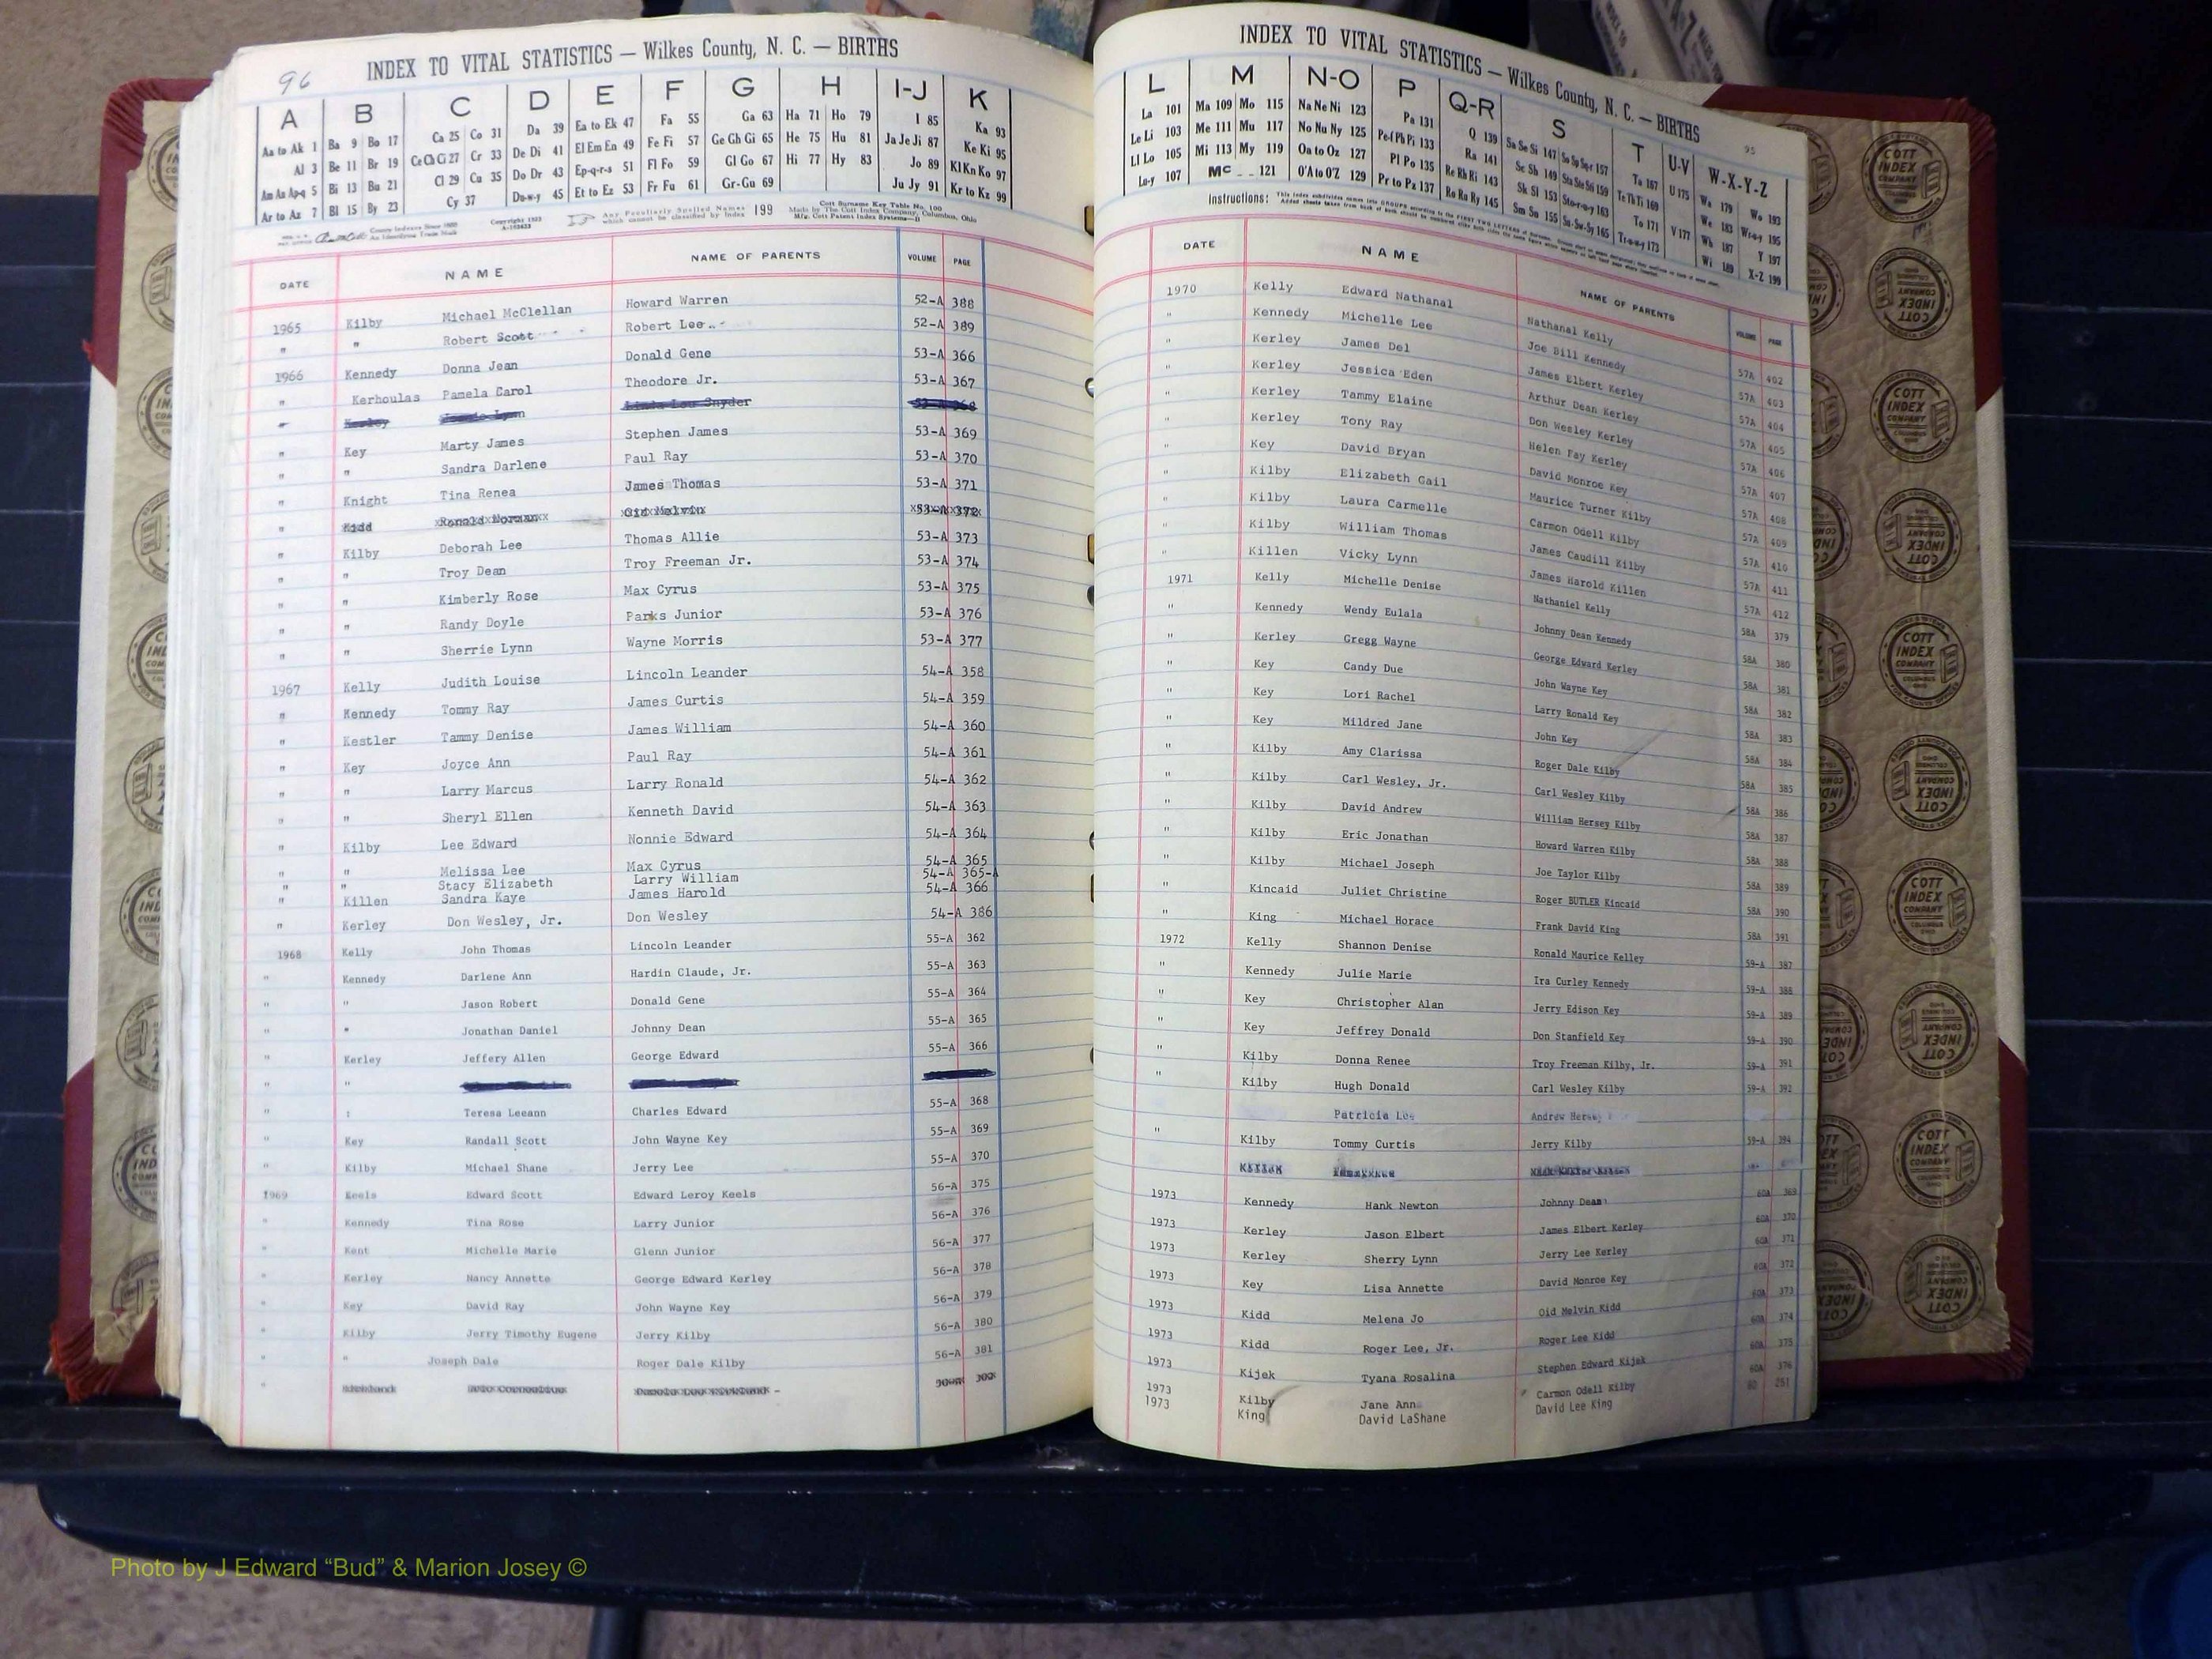 96
INDEX TO VITAL STATISTICS — Wilkes County, N. C. — BIRTHS
A B C D E F G H I-J K
Aa to Ak 1 Ba 9 Bo 17 Ca 25 Co 31 Da 39 Ea to Ek 47 Fa 55 Ga 63 Ha 71 Ho 79 I 85 Ka 93
Al 3 Be 11 Br 19 Ce Ch Ci 27 Cr 33 De Di 41 El Em En 49 Fe Fi 57 Ge Gh Gi 65 He 75 Hu 81 Ja Je Ji 87 Ke Ki 95
Am An Ap-q 5 Bi 13 Bu 21 Cl 29 Cu 35 Do Dr 43 Ep-q-r-s 51 Fl Fo 59 Gl Go 67 Hi 77 Hy 83 Jo 89 Kl Kn Ko 97
Ar to Az 7 Bl 15 By 23 Cy 37 Du-w-y 45 Et to Ez 53 Fr Fu 61 Gr-Gu 69 Ju Jy 91 Kr to Kz 99
County Indexes Since 1888
An Identifying Trade Mark
Copyright 1923
Any Peculiarly Spelled Names which cannot be classified by Index 199
Cott Surname Key Table No. 100
Made by The Cott Index Company, Columbus, Ohio
DATE NAME NAME OF PARENTS VOLUME PAGE
1965 Kilby Michael McClellan Howard Warren 52-A 388
" " Robert Scott Robert Lee 52-A 389
1966 Kennedy Donna Jean Donald Gene 53-A 366
" Kerhoulas Pamela Carol Theodore Jr. 53-A 367
" Key Marty James Stephen James 53-A 369
" " Sandra Darlene Paul Ray 53-A 370
" Knight Tina Renea James Thomas 53-A 371
" Kidd Ronald Norman Oid Melvin 53-A 372
" Kilby Deborah Lee Thomas Allie 53-A 373
" " Troy Dean Troy Freeman Jr. 53-A 374
" " Kimberly Rose Max Cyrus 53-A 375
" " Randy Doyle Parks Junior 53-A 376
" " Sherrie Lynn Wayne Morris 53-A 377
1967 Kelly Judith Louise Lincoln Leander 54-A 358
" Kennedy Tommy Ray James Curtis 54-A 359
" Kestler Tammy Denise James William 54-A 360
" Key Joyce Ann Paul Ray 54-A 361
" " Larry Marcus Larry Ronald 54-A 362
" " Sheryl Ellen Kenneth David 54-A 363
" Kilby Lee Edward Nonnie Edward 54-A 364
" " Melissa Lee Max Cyrus 54-A 365
" " Stacy Elizabeth Larry William 54-A 365-A
" Killen Sandra Kaye James Harold 54-A 366
" Kerley Don Wesley, Jr. Don Wesley 54-A 386
1968 Kelly John Thomas Lincoln Leander 55-A 362
" Kennedy Darlene Ann Hardin Claude, Jr. 55-A 363
" " Jason Robert Donald Gene 55-A 364
" " Jonathan Daniel Johnny Dean 55-A 365
" Kerley Jeffery Allen George Edward 55-A 366
" "
" : Teresa Leeann Charles Edward 55-A 368
" Key Randall Scott John Wayne Key 55-A 369
" Kilby Michael Shane Jerry Lee 55-A 370
1969 Keels Edward Scott Edward Leroy Keels 56-A 375
" Kennedy Tina Rose Larry Junior 56-A 376
" Kent Michelle Marie Glenn Junior 56-A 377
" Kerley Nancy Annette George Edward Kerley 56-A 378
" Key David Ray John Wayne Key 56-A 379
" Kilby Jerry Timothy Eugene Jerry Kilby 56-A 380
" " Joseph Dale Roger Dale Kilby 56-A 381
INDEX TO VITAL STATISTICS — Wilkes County, N. C. — BIRTHS
95
L M N-O P Q-R S T U-V W-X-Y-Z
La 101 Ma 109 Mo 115 Na Ne Ni 123 Pa 131 Q 139 Sa Se Si 147 So Sp Sq-r 157 Ta 167 U 175 Wa 179 Wo 193
Le Li 103 Me 111 Mu 117 No Nu Ny 125 Pe-f Ph Pi 133 Ra 141 Sc Sh 149 Sta Ste Sti 159 Te Th Ti 169 V 177 We 183 Wr-u-y 195
Ll Lo 105 Mi 113 My 119 Oa to Oz 127 Pl Po 135 Re Rh Ri 143 Sk Sl 153 Sto-r-u-y 163 To 171 Wh 187 Y 197
Lu-y 107 Mc 121 O'A to O'Z 129 Pr to Pz 137 Ro Ru Ry 145 Sm Sn 155 Su-Sw-Sy 165 Tr-u-w-y 173 Wi 189 X-Z 199
Instructions:
DATE NAME NAME OF PARENTS VOLUME PAGE
1970 Kelly Edward Nathanal Nathanal Kelly 57A 402
" Kennedy Michelle Lee Joe Bill Kennedy 57A 403
" Kerley James Del James Elbert Kerley 57A 404
" Kerley Jessica Eden Arthur Dean Kerley 57A 405
" Kerley Tammy Elaine Don Wesley Kerley 57A 406
" Kerley Tony Ray Helen Fay Kerley 57A 407
" Key David Bryan David Monroe Key 57A 408
" Kilby Elizabeth Gail Maurice Turner Kilby 57A 409
" Kilby Laura Carmelle Carmon Odell Kilby 57A 410
" Kilby William Thomas James Caudill Kilby 57A 411
" Killen Vicky Lynn James Harold Killen 57A 412
1971 Kelly Michelle Denise Nathaniel Kelly 58A 379
" Kennedy Wendy Eulala Johnny Dean Kennedy 58A 380
" Kerley Gregg Wayne George Edward Kerley 58A 381
" Key Candy Due John Wayne Key 58A 382
" Key Lori Rachel Larry Ronald Key 58A 383
" Key Mildred Jane John Key 58A 384
" Kilby Amy Clarissa Roger Dale Kilby 58A 385
" Kilby Carl Wesley, Jr. Carl Wesley Kilby 58A 386
" Kilby David Andrew William Hersey Kilby 58A 387
" Kilby Eric Jonathan Howard Warren Kilby 58A 388
" Kilby Michael Joseph Joe Taylor Kilby 58A 389
" Kincaid Juliet Christine Roger BUTLER Kincaid 58A 390
" King Michael Horace Frank David King 58A 391
1972 Kelly Shannon Denise Ronald Maurice Kelley 59-A 387
" Kennedy Julie Marie Ira Curley Kennedy 59-A 388
" Key Christopher Alan Jerry Edison Key 59-A 389
" Key Jeffrey Donald Don Stanfield Key 59-A 390
" Kilby Donna Renee Troy Freeman Kilby, Jr. 59-A 391
" Kilby Hugh Donald Carl Wesley Kilby 59-A 392
Patricia Lee Andrew Hersey
" Kilby Tommy Curtis Jerry Kilby 59-A 394
1973 Kennedy Hank Newton Johnny Dean 60A 369
1973 Kerley Jason Elbert James Elbert Kerley 60A 370
1973 Kerley Sherry Lynn Jerry Lee Kerley 60A 371
1973 Key Lisa Annette David Monroe Key 60A 372
1973 Kidd Melena Jo Oid Melvin Kidd 60A 373
1973 Kidd Roger Lee, Jr. Roger Lee Kidd 60A 374
1973 Kijek Tyana Rosalina Stephen Edward Kijek 60A 375
1973 Kilby Jane Ann Carmon Odell Kilby 60A 376
1973 King David LaShane David Lee King 60 251
COTT INDEX COMPANY
Photo by J Edward “Bud” & Marion Josey ©